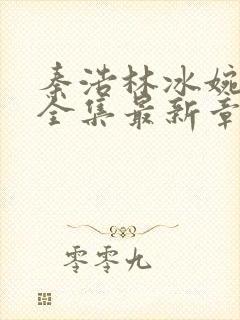 秦浩林冰婉
全集最新章
零零九